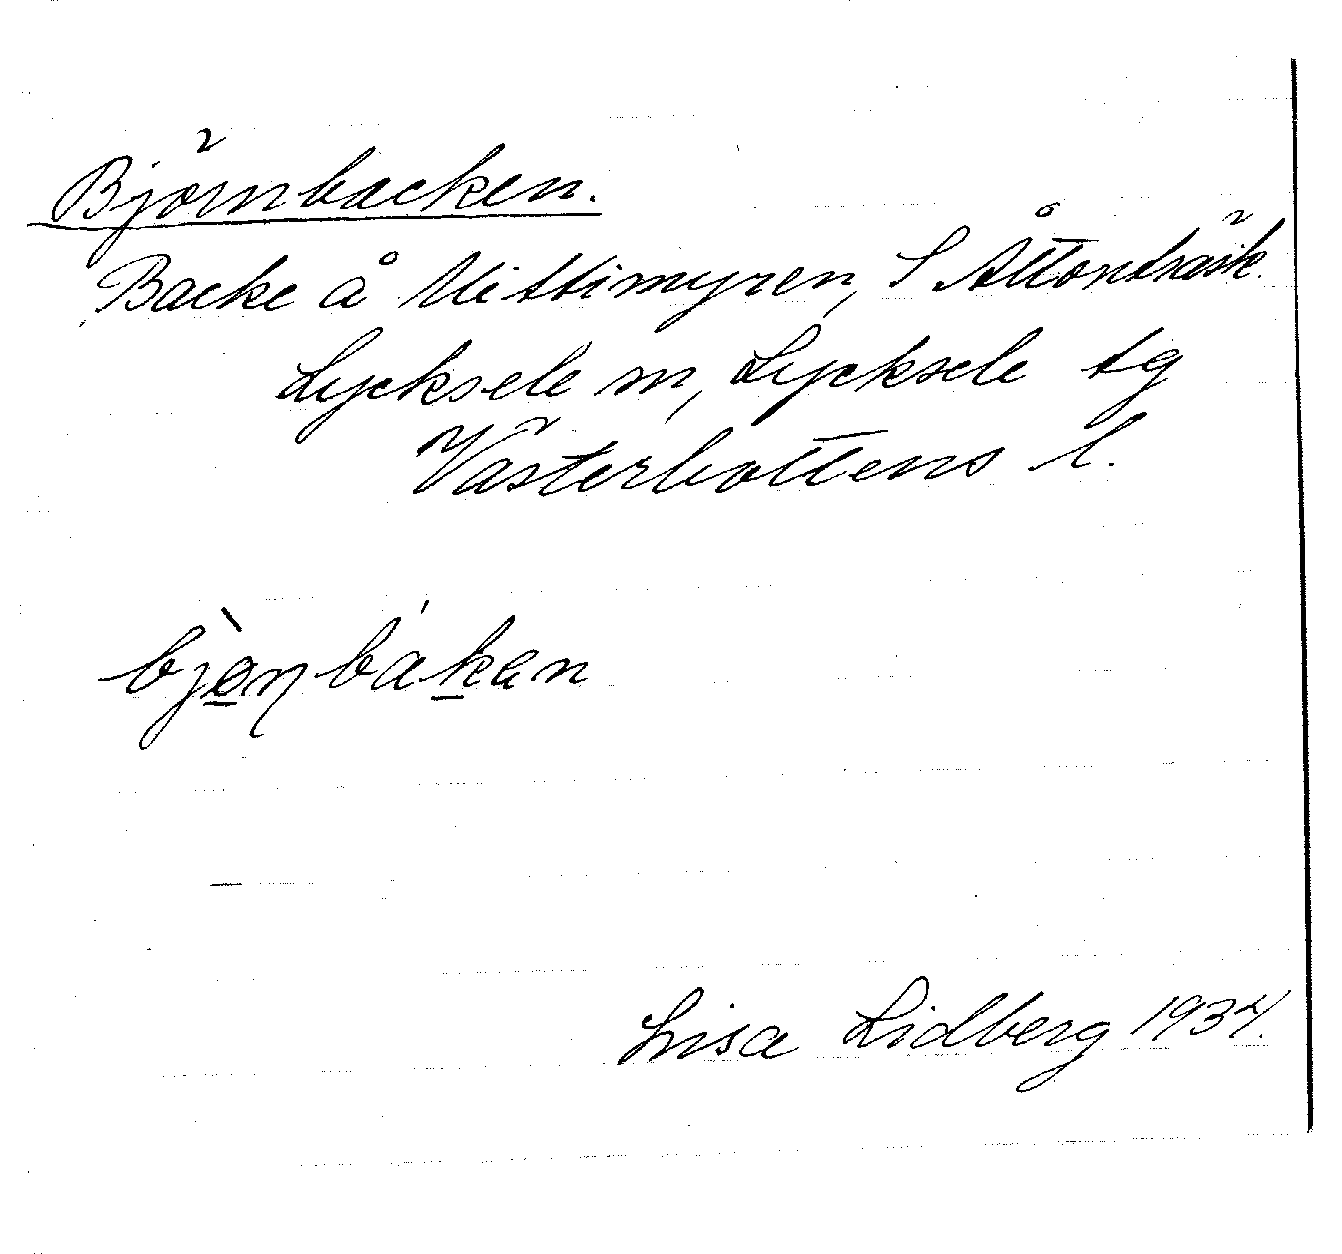 Björnbacken.
Backe å Mittimyren, S Åttonträsk.
Lycksele m, Lycksele tg
Västerbottens l.
bjònbákan
Lisa Lidberg 1934.